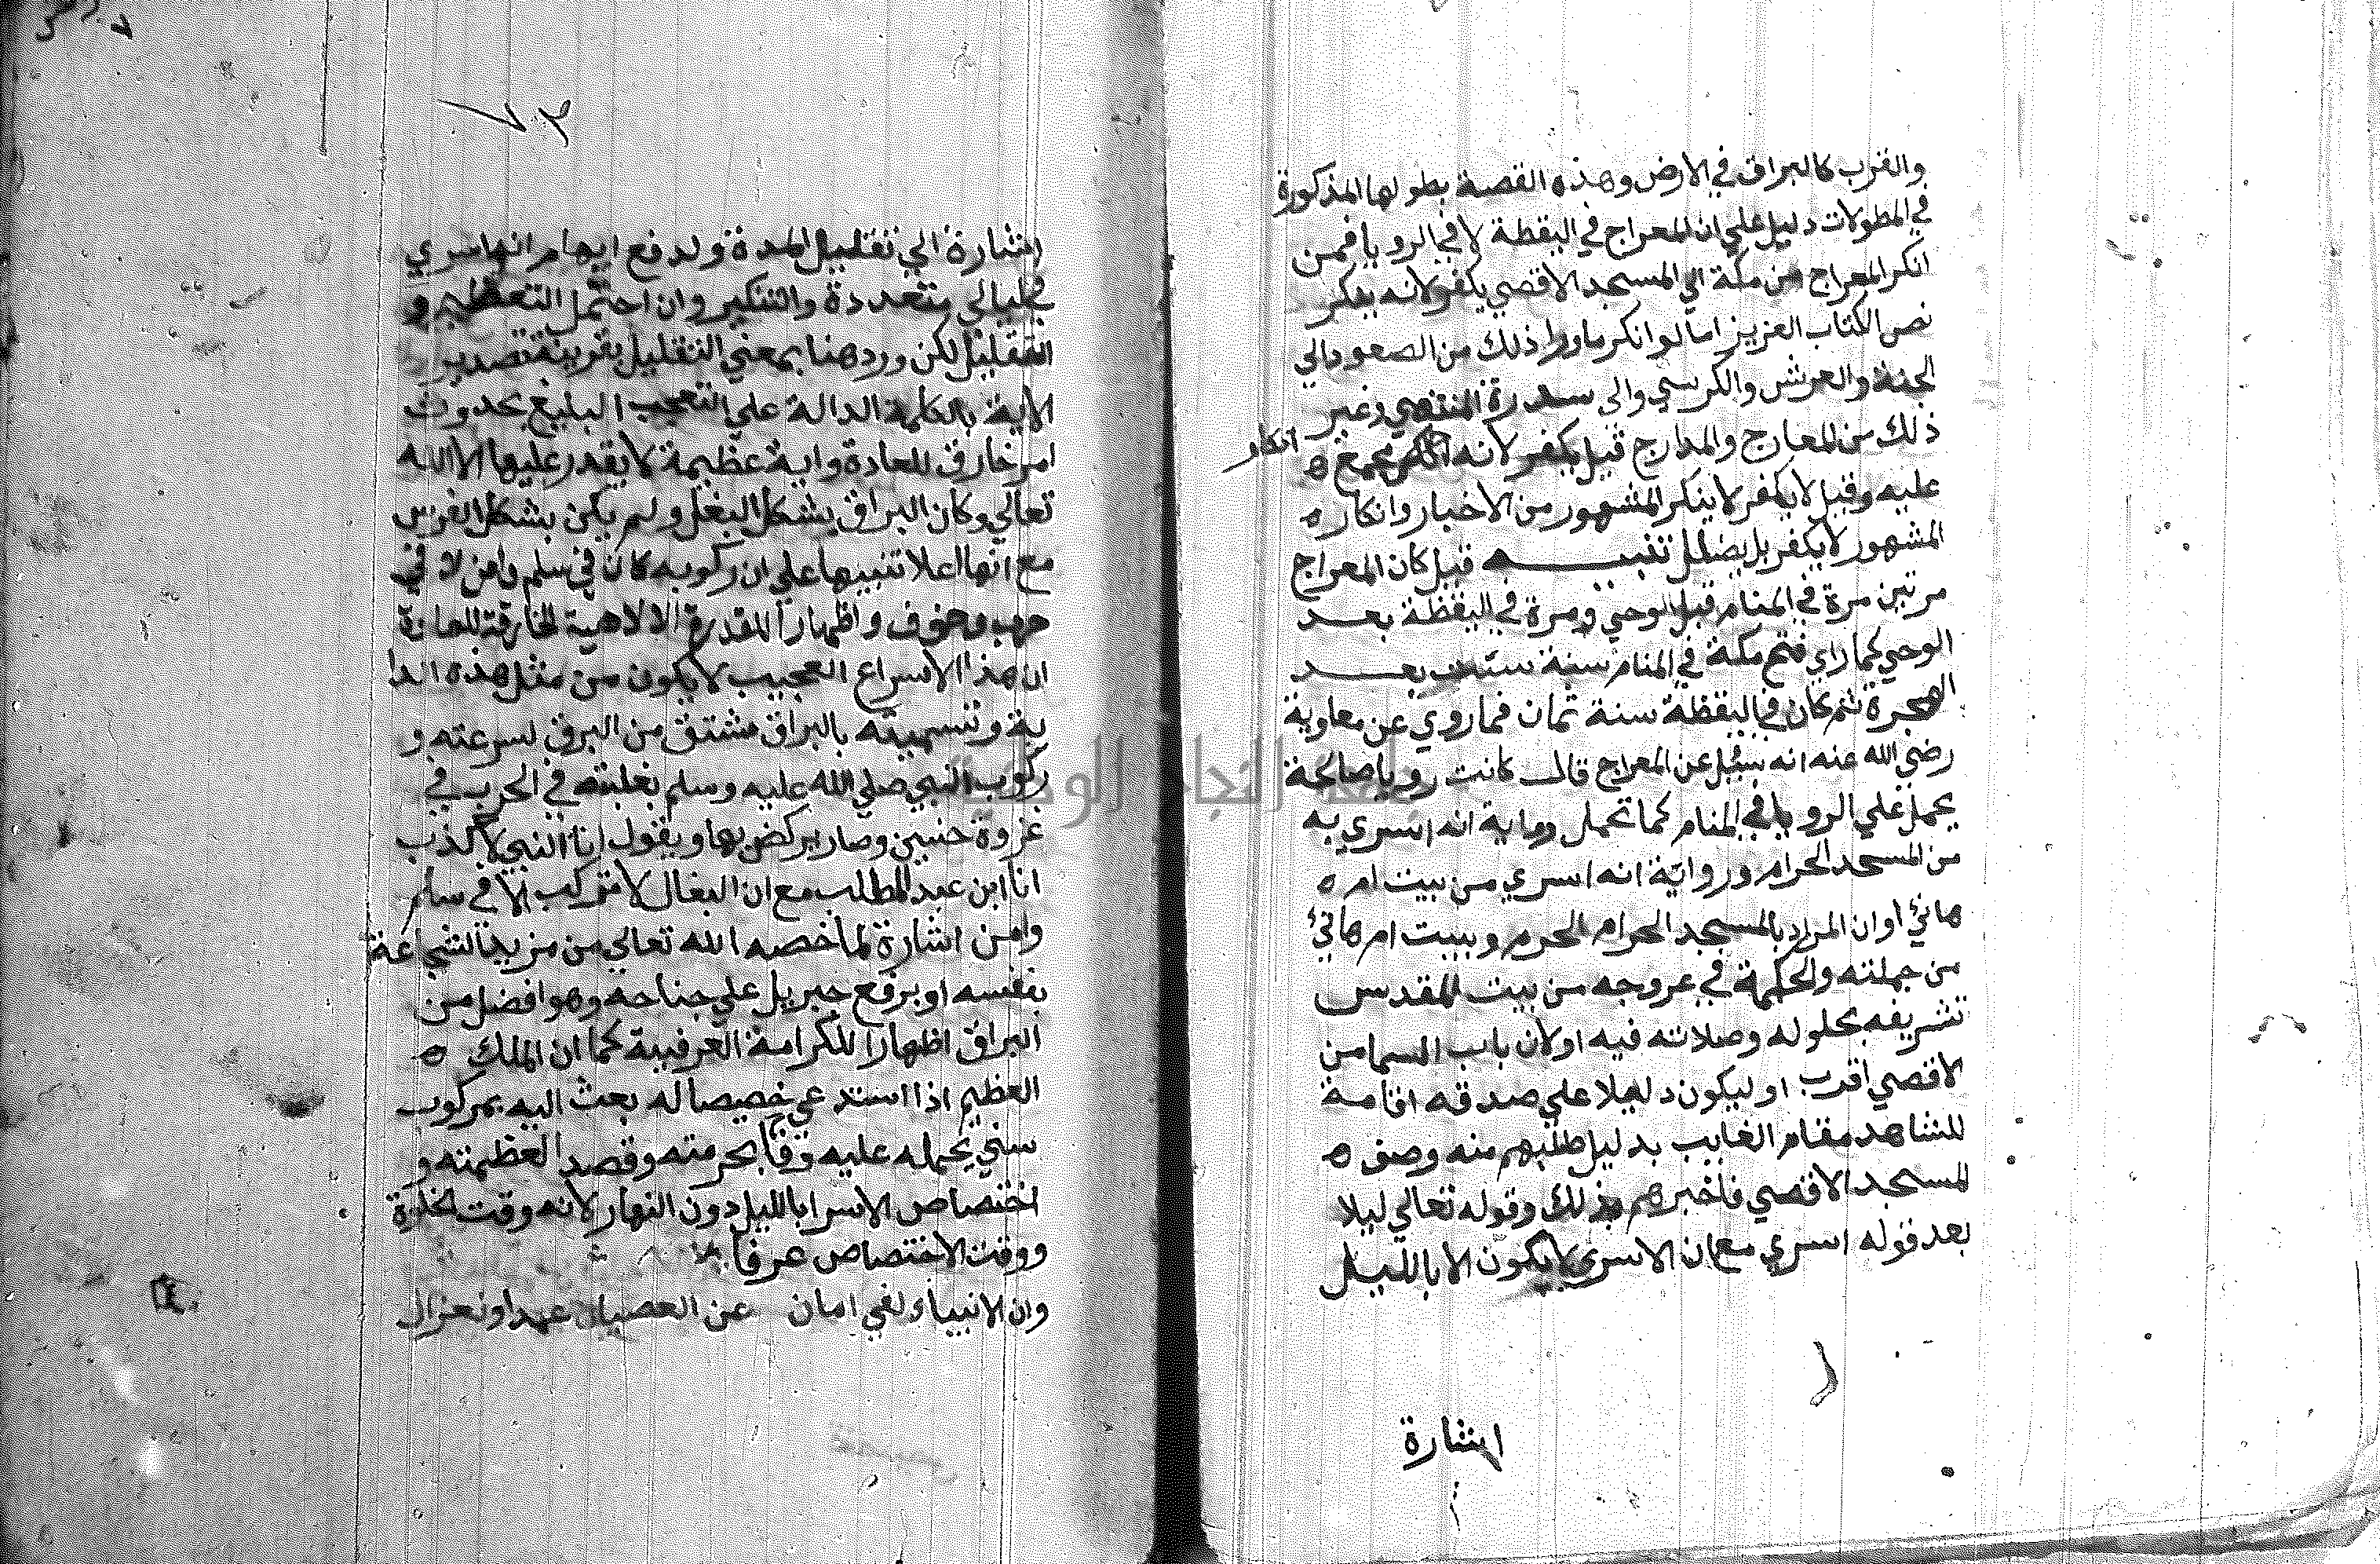 والقرب كالبراق في الارض وهذه القصة بطولها المذكورة
في المطولات دليل علي ان المعراج في اليقظة لا في الرويا فمن
انكر المعراج من مكة الي المسجد الاقصي يكفر لانه ينكر
نص الكتاب العزيز اما لو انكر ما ورا ذلك من الصعود الي
الجنة والعرش والكرسي والي سدرة المنتهي وغير
ذلك من المعارج والمدارج قيل يكفر لانه مجمع ه
انكار
عليه وقيل لا يكفر لا ينكر المشهور من الاخبار وانكار ه
المشهور لا يكفر بل يضلل تنبيه قيل كان المعراج
مرتين مرة في المنام قبل الوحي ومرة في اليقظة بعد
الوحي كما راي فتح مكة في المنام سنة ست بعد
الهجرة ثم كان في اليقظة سنة ثمان فما روي عن معاوية
رضي الله عنه انه سئل عن المعراج قال كانت رويا صالحة
يحمل علي الرويا في المنام كما تحمل رواية انه اسري به
من المسجد الحرام ورواية انه اسري من بيت ام ه
هانئ او ان المراد بالمسجد الحرام الحرم وببيت ام هانئ
من جملته والحكمة في عروجه من بيت المقدس
تشريفه بحلوله وصلاته فيه او لان باب السما من
الاقصي اقرب او ليكون دليلا علي صدقه اقامة
للشاهد مقام الغايب بدليل طلبهم منه وصف ه
المسجد الاقصي فاخبرهم بذلك وقوله تعالي ليلا
بعد قوله اسري مع ان الاسري لا يكون الا بالليل
اشارة
٧٣
اشارة الي تقليل المدة ولدفع ايهام انه اسري
في ليالي متعددة والتنكير وان احتمل التعظيم و
التقليل لكن ورد هنا بمعني التقليل بقرينة تصدير
الاية بالكلمة الدالة علي التعجب البليغ بحدوث
امر خارق للعادة واية عظيمة لا يقدر عليها الا الله
تعالي وكان البراق بشكل البغل ولم يكن بشكل الفرس
مع انها اعلا تنبيها علي ان ركوبه كان في سلم وامن لا في
حرب وخوف واظهارا للقدرة الالاهية الخارقة للعادة
ان هذا الاسراع العجيب لا يكون من مثل هذه الدا
بة وتسميته بالبراق مشتق من البرق لسرعته و
ركوب النبي صلي الله عليه وسلم بغلته في الحرب في
غزوة حنين وصار يركض بها ويقول انا النبي لا كذب
انا ابن عبد المطلب مع ان البغال لا تركب الا في سلم
وامن اشارة لما خصه الله تعالي من مزيد الشجاعة
بنفسه او برفع جبريل علي جناحه وهو افضل من
البراق اظهارا للكرامة العرفية كما ان الملك ه
العظيم اذا استدعي خصيصا له بعث اليه بمركوب
سني يحمله عليه وفا بحرمته وقصد العظمته و
اختصاص الاسرا بالليل دون النهار لانه وقت الخلوة
ووقت الاختصاص عرفا
وان الانبياء لفي امان عن العصيان عمدا وانعزال